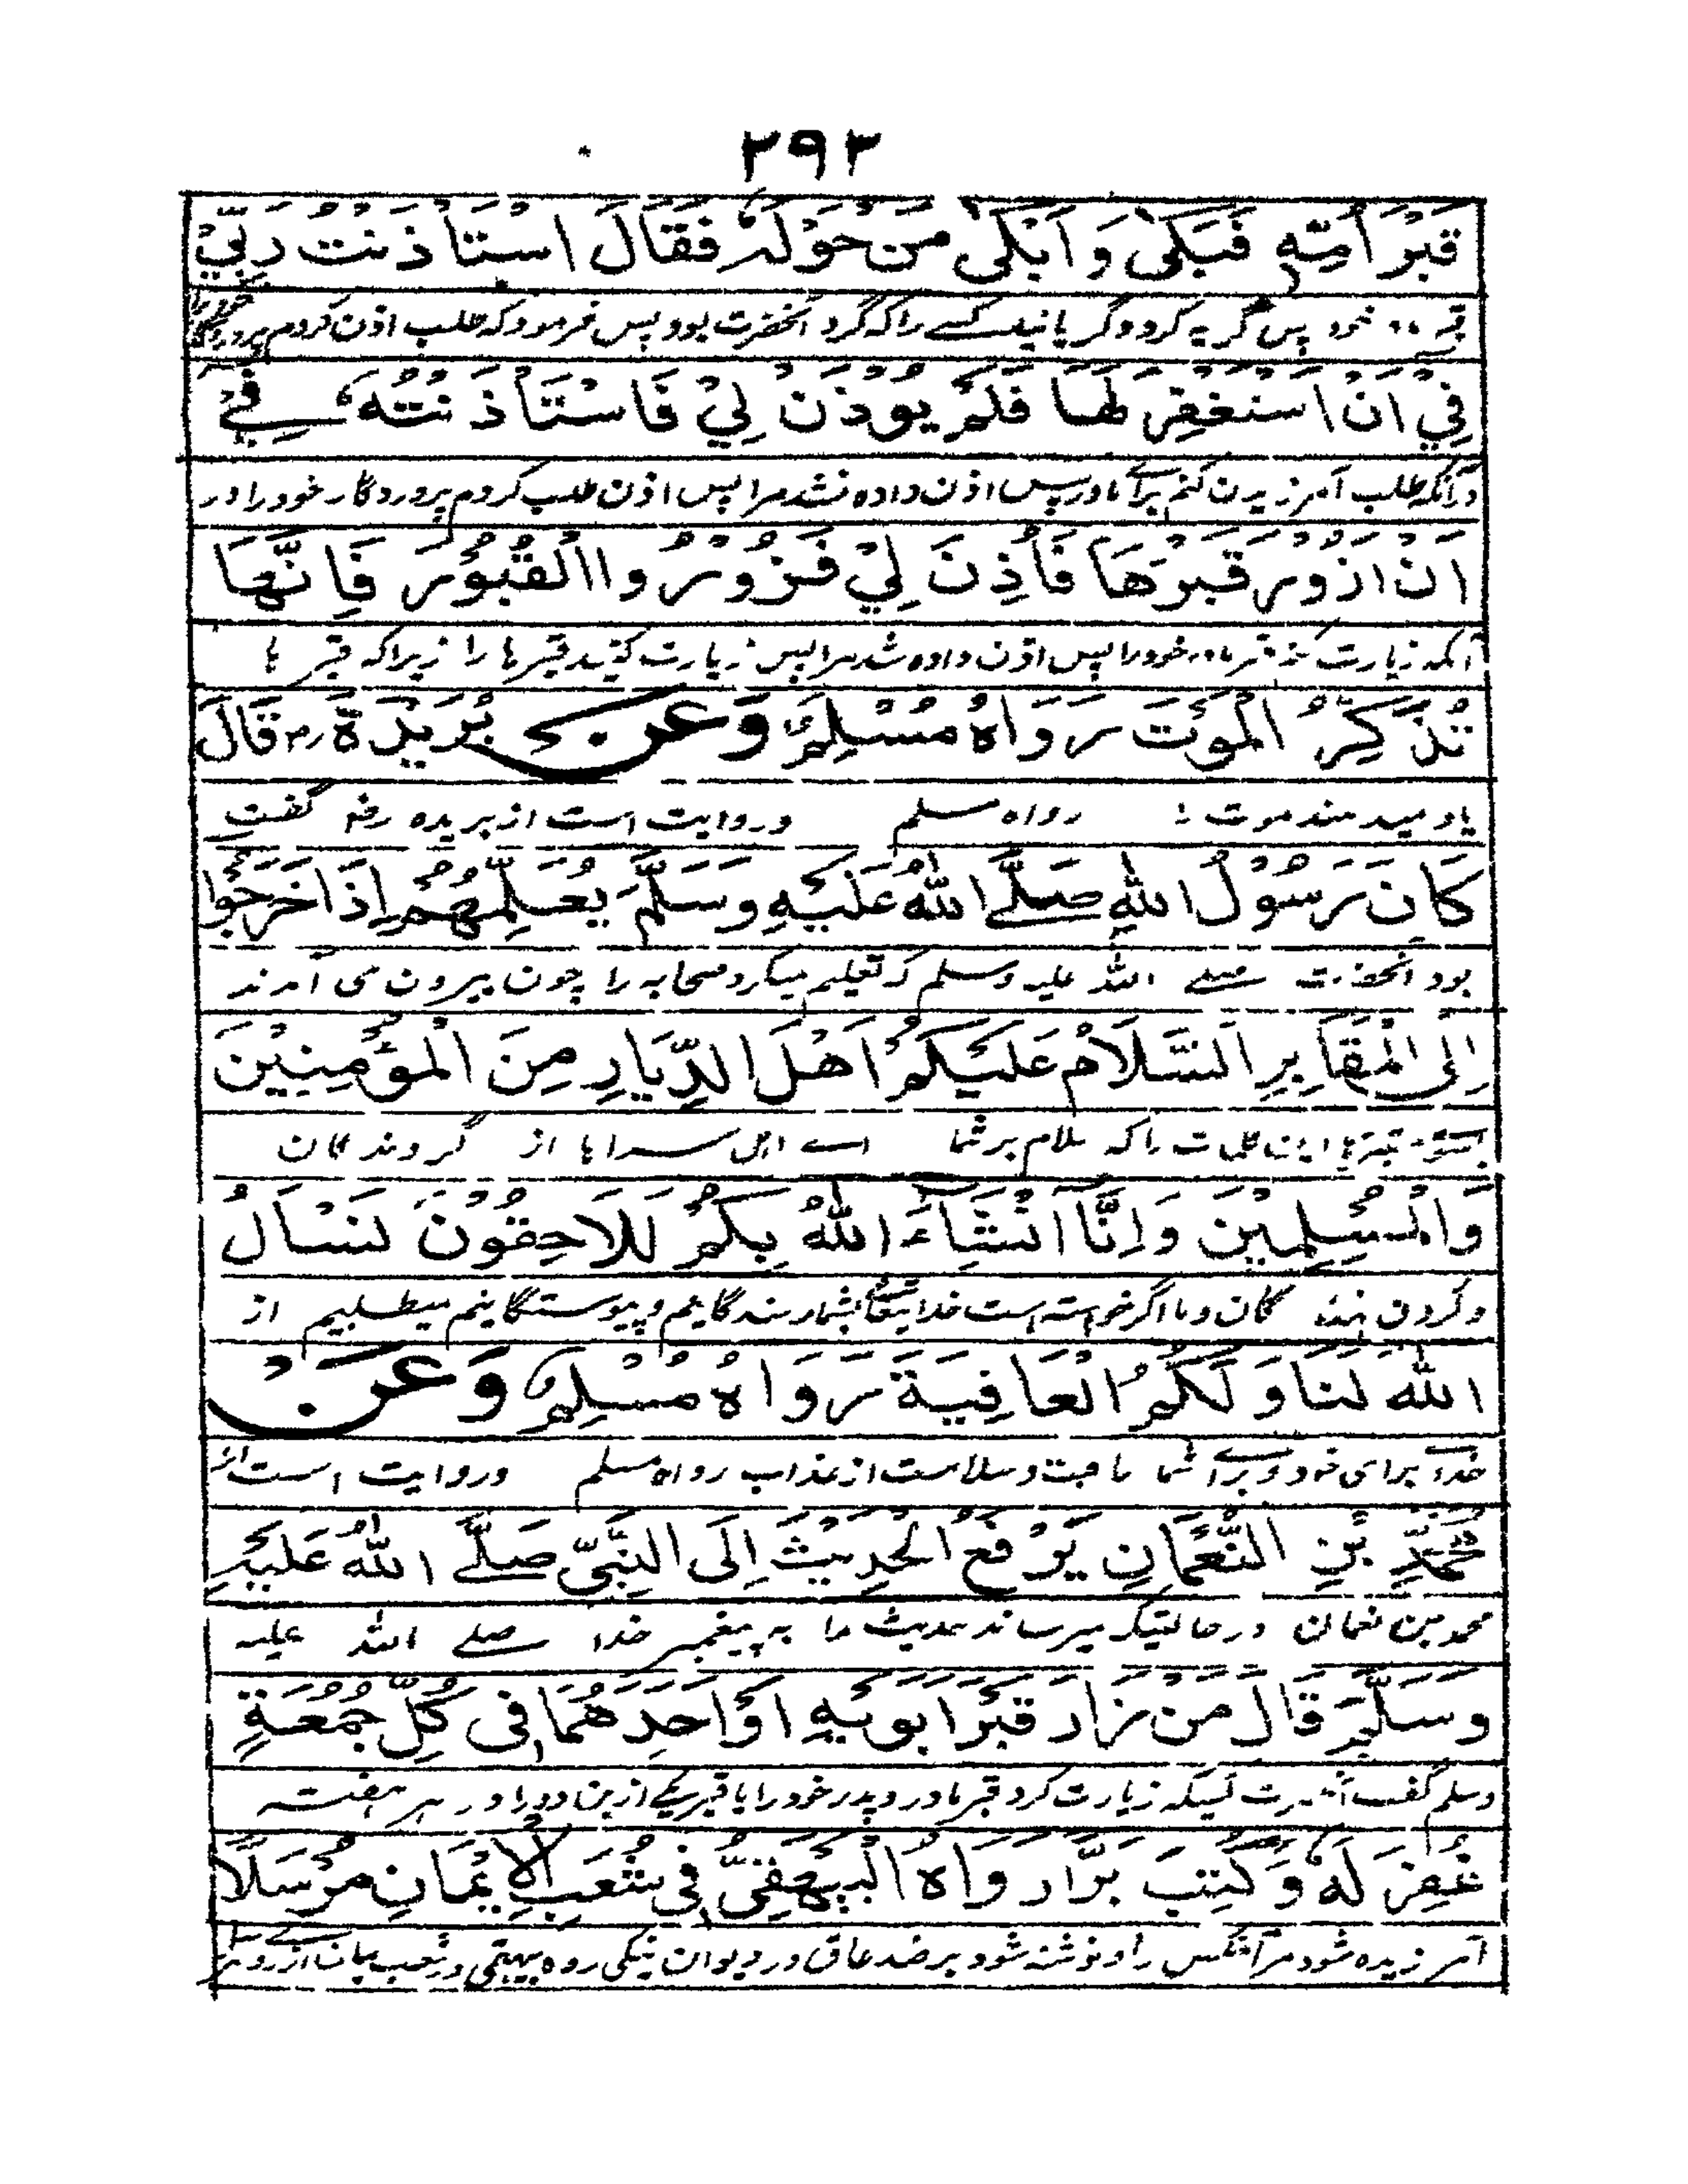 ٢٩٣
قَبْرَ اُمِّهٖ فَبَكىٰ وَ اَبْكىٰ مَنْ حَوْلَهٗ فَقَالَ اسْتَأْذَنْتُ رَبِّيْ
پس گریه کرد و گریانید کسے را که گرد آنحضرت بود پس فرمود که طلب اذن کردم
فِيْ اَنْ اَسْتَغْفِرَ لَهَا فَلَمْ يُوْذَنْ لِيْ فَاسْتَأْذَنْتُهٗ فِيْ
درآنکه طلب آمرزیدن کنم برائے مادر پس اذن داده نشد مرا پس اذن طلب کردم پروردگار خود را در
اَنْ اَزُوْرَ قَبْرَهَا فَأُذِنَ لِيْ فَزُوْرُوا الْقُبُوْرَ فَاِنَّهَا
آنکه زیارت کنم قبر مادر خود را پس اذن داده شد مرا پس زیارت کنید قبر ها را زیراکه قبر ها
تُذَكِّرُ الْمَوْتَ رَوَاهُ مُسْلِمٌ وَعَنْ بُرَيْدَةَ رض قَالَ
یاد میدهند موت را رواه مسلم و روایت است از بریده رض گفت
كَانَ رَسُوْلُ اللهِ صَلَّے اللهُ عَلَيْهِ وَسَلَّمَ يُعَلِّمُهُمْ اِذَا خَرَجُوْا
بود آنحضرت صلے الله علیه وسلم که تعلیم میکرد صحابه را چون بیرون می آمدند
اِلَى الْمَقَابِرِ اَلسَّلَامُ عَلَيْكُمْ اَهْلَ الدِّيَارِ مِنَ الْمُؤْمِنِيْنَ
بسوئے قبرها این کلمات را که سلام بر شما اے اهل سراها از گروندگان
وَالْمُسْلِمِيْنَ وَاِنَّا اِنْشَاءَ اللهُ بِكُمْ لَلَاحِقُوْنَ نَسْأَلُ
و گردن نهنده گان و ما اگر خواسته است خدایتعالے بشما رسندگانیم و پیوستگانیم میطلبیم از
اللهَ لَنَا وَ لَكُمُ الْعَافِيَةَ رَوَاهُ مُسْلِمٌ وَعَنْ
خدا برای خود و برائے شما عافیت و سلامت از عذاب رواه مسلم و روایت است از
مُحَمَّدِ بْنِ النُّعْمَانِ يَرْفَعُ الْحَدِيْثَ اِلَى النَّبِيِّ صَلَّے اللهُ عَلَيْهِ
محمد بن نعمان در حالتیکه میرساند حدیث را به پیغمبر خدا صلے الله علیه
وَسَلَّمَ قَالَ مَنْ زَارَ قَبْرَ اَبَوَيْهِ اَوْ اَحَدِهِمَا فِى كُلِّ جُمُعَةٍ
وسلم گفت آنحضرت کسیکه زیارت کرد قبر مادر و پدر خود را یا قبر یکے ازین دو را در هر هفته
غُفِرَ لَهٗ وَكُتِبَ بَرًّا رَوَاهُ الْبَيْهَقِىُّ فِى شُعَبِ الْاِيْمَانِ مُرْسَلًا
آمرزیده شود مر آنکس را و نوشته شود بر ضد عاق در دیوان نیکی رواه بیهقی در شعب